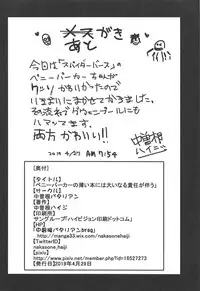 あとがき
今回は「スパイダーバース」の
ペニーパーカーちゃんが
クッソかわいかったので
いきおいにまかせてかきました。
その流れでグウェンプールにも
ハマってます。
両方かわいい!!
2019 4/27 AM 7:54
中曽根
ハイジ
【奥付】
【タイトル】
「ペニーパーカーの薄い本には大いなる責任が伴う」
【サークル】
中曽根バタリアン
【発行者】
中曽根ハイジ
【印刷所】
サングループ「ハイビジョン印刷ドットコム」
http://manga33.wix.com/nakasonehaiji
【TwitterID】
nakasonehaiji
【pixiv】
http://www.pixiv.net/member.php?id=18527273
【発行日】2019年4月29日